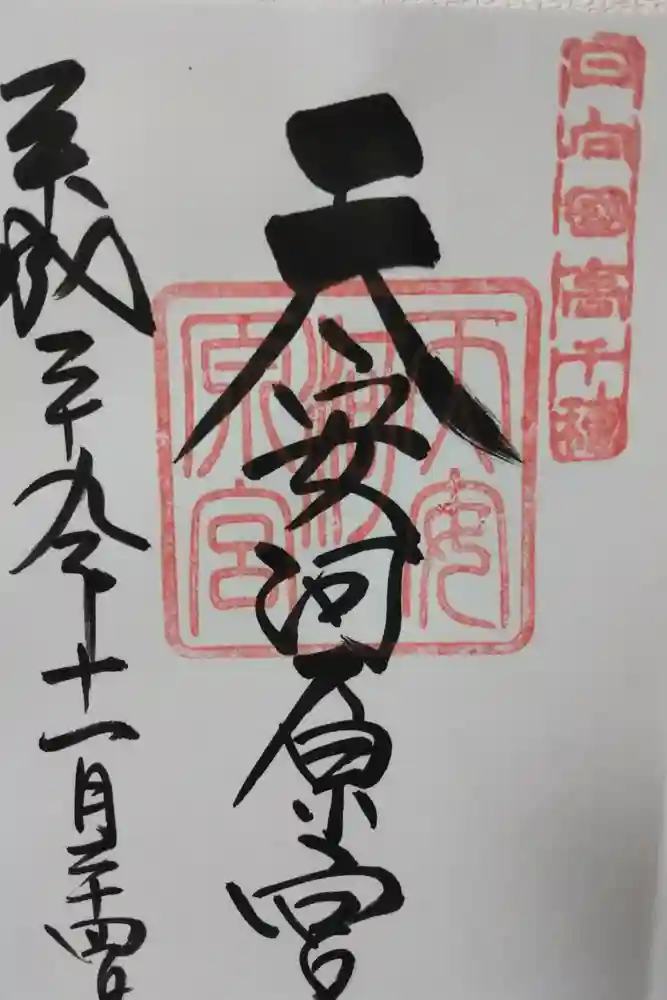 日向國高千穂
天安河原宮
天安河原宮
平成二十九年十一月二十四日